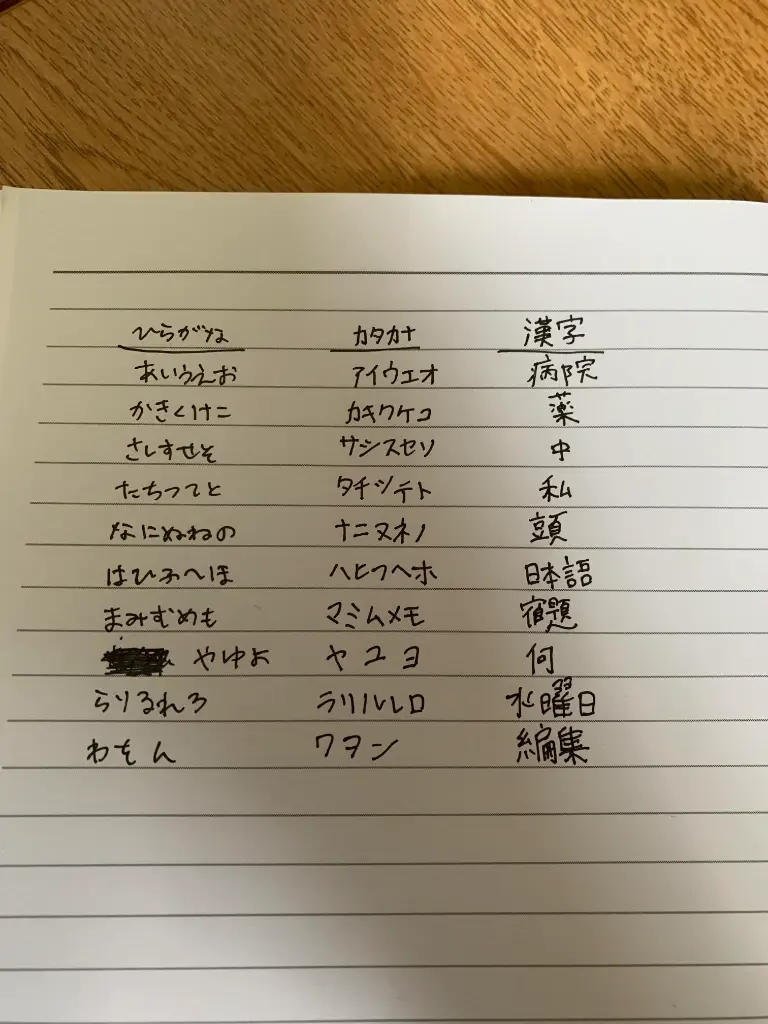 ひらがな カタカナ 漢字
あいうえお アイウエオ 病院
かきくけこ カキクケコ 薬
さしすせそ サシスセソ 中
たちつてと タチツテト 私
なにぬねの ナニヌネノ 頭
はひふへほ ハヒフヘホ 日本語
まみむめも マミムメモ 宿題
やゆよ ヤユヨ 何
らりるれろ ラリルレロ 水曜日
わをん ワヲン 編集